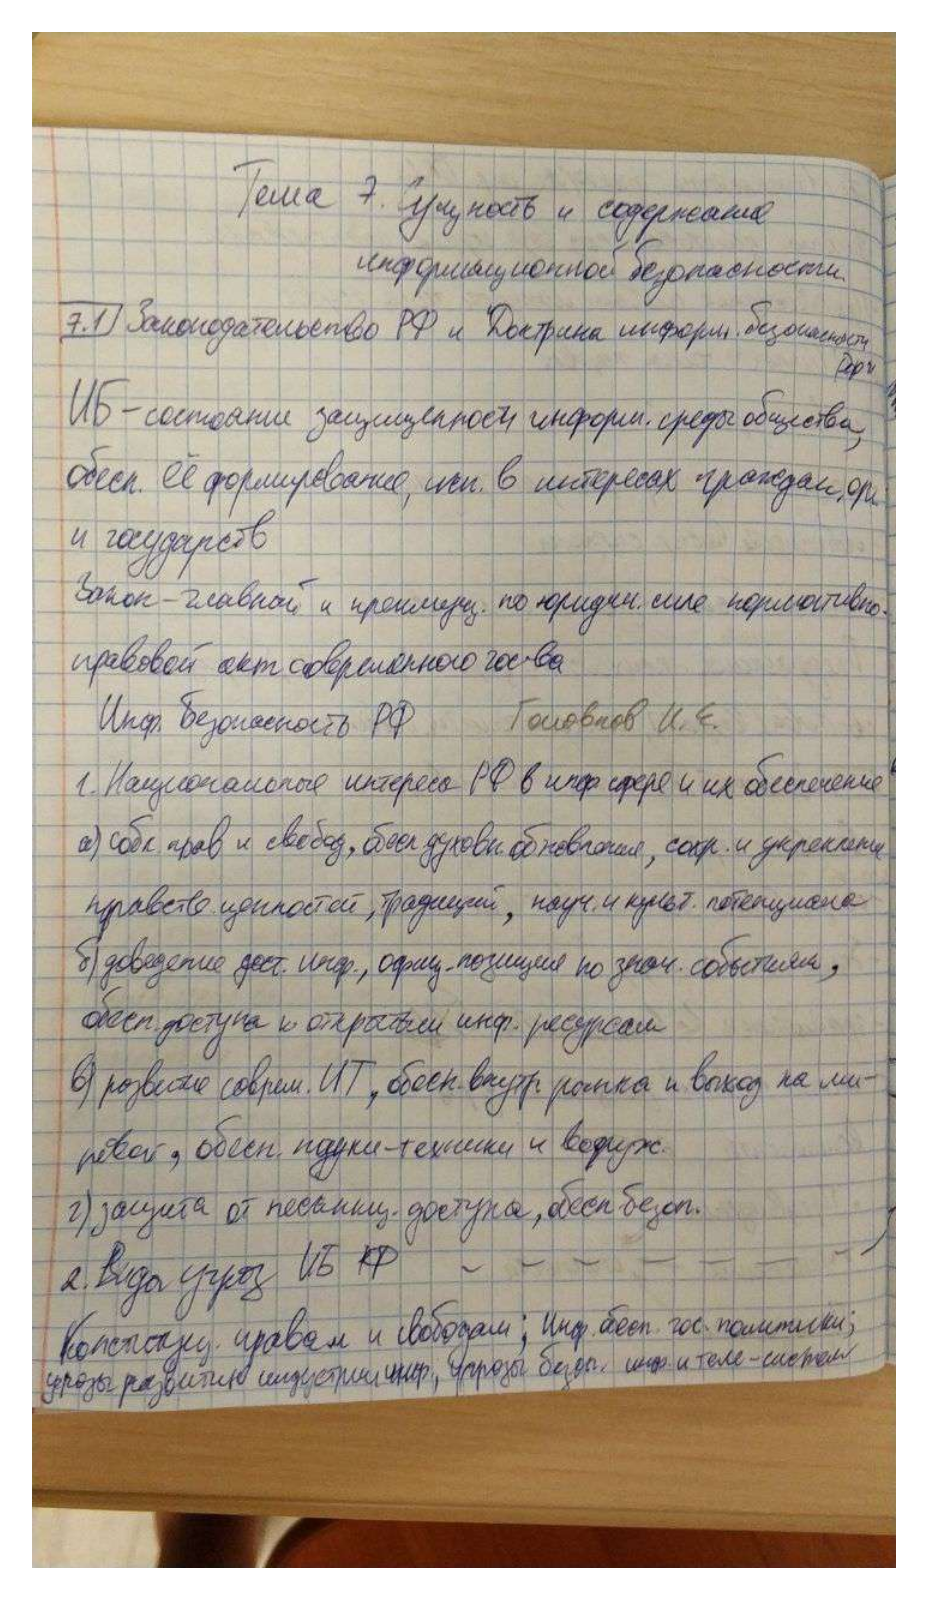 Тема 7. Сущность и содержание
информационной безопасности.
7.1) Законодательство РФ и Доктрина информ. безопасности
ИБ – состояние защищенности информ. среды общества,
обесп. её формирование, исп. в интересах граждан, орг.
и государств
Закон – главный и преимущ. по юридич. силе нормативно-
правовой акт современного гос-ва
Инф. безопасность РФ Головнов И. Е.
1. Национальные интересы РФ в инф сфере и их обеспечение
а) собл. прав и свобод, обесп духовн. обновления, сохр. и укрепления
нравств. ценностей, традиций, науч. и культ. потенциала
б) доведение дост. инф., офиц. позиция по знач. событиям,
обесп. доступа к открытым инф. ресурсам
в) развитие соврем. ИТ, обесп. внутр рынка и выход на ми-
ровой, обесп. науки-техники и
г) защита от несанкц. доступа, обесп безоп.
2. Виды угроз ИБ РФ – – – – – – –
Конституц. правам и свободам; Инф. обесп. гос. политики;
угрозы развитию индустрии инф., угрозы безоп. инф. и теле-систем